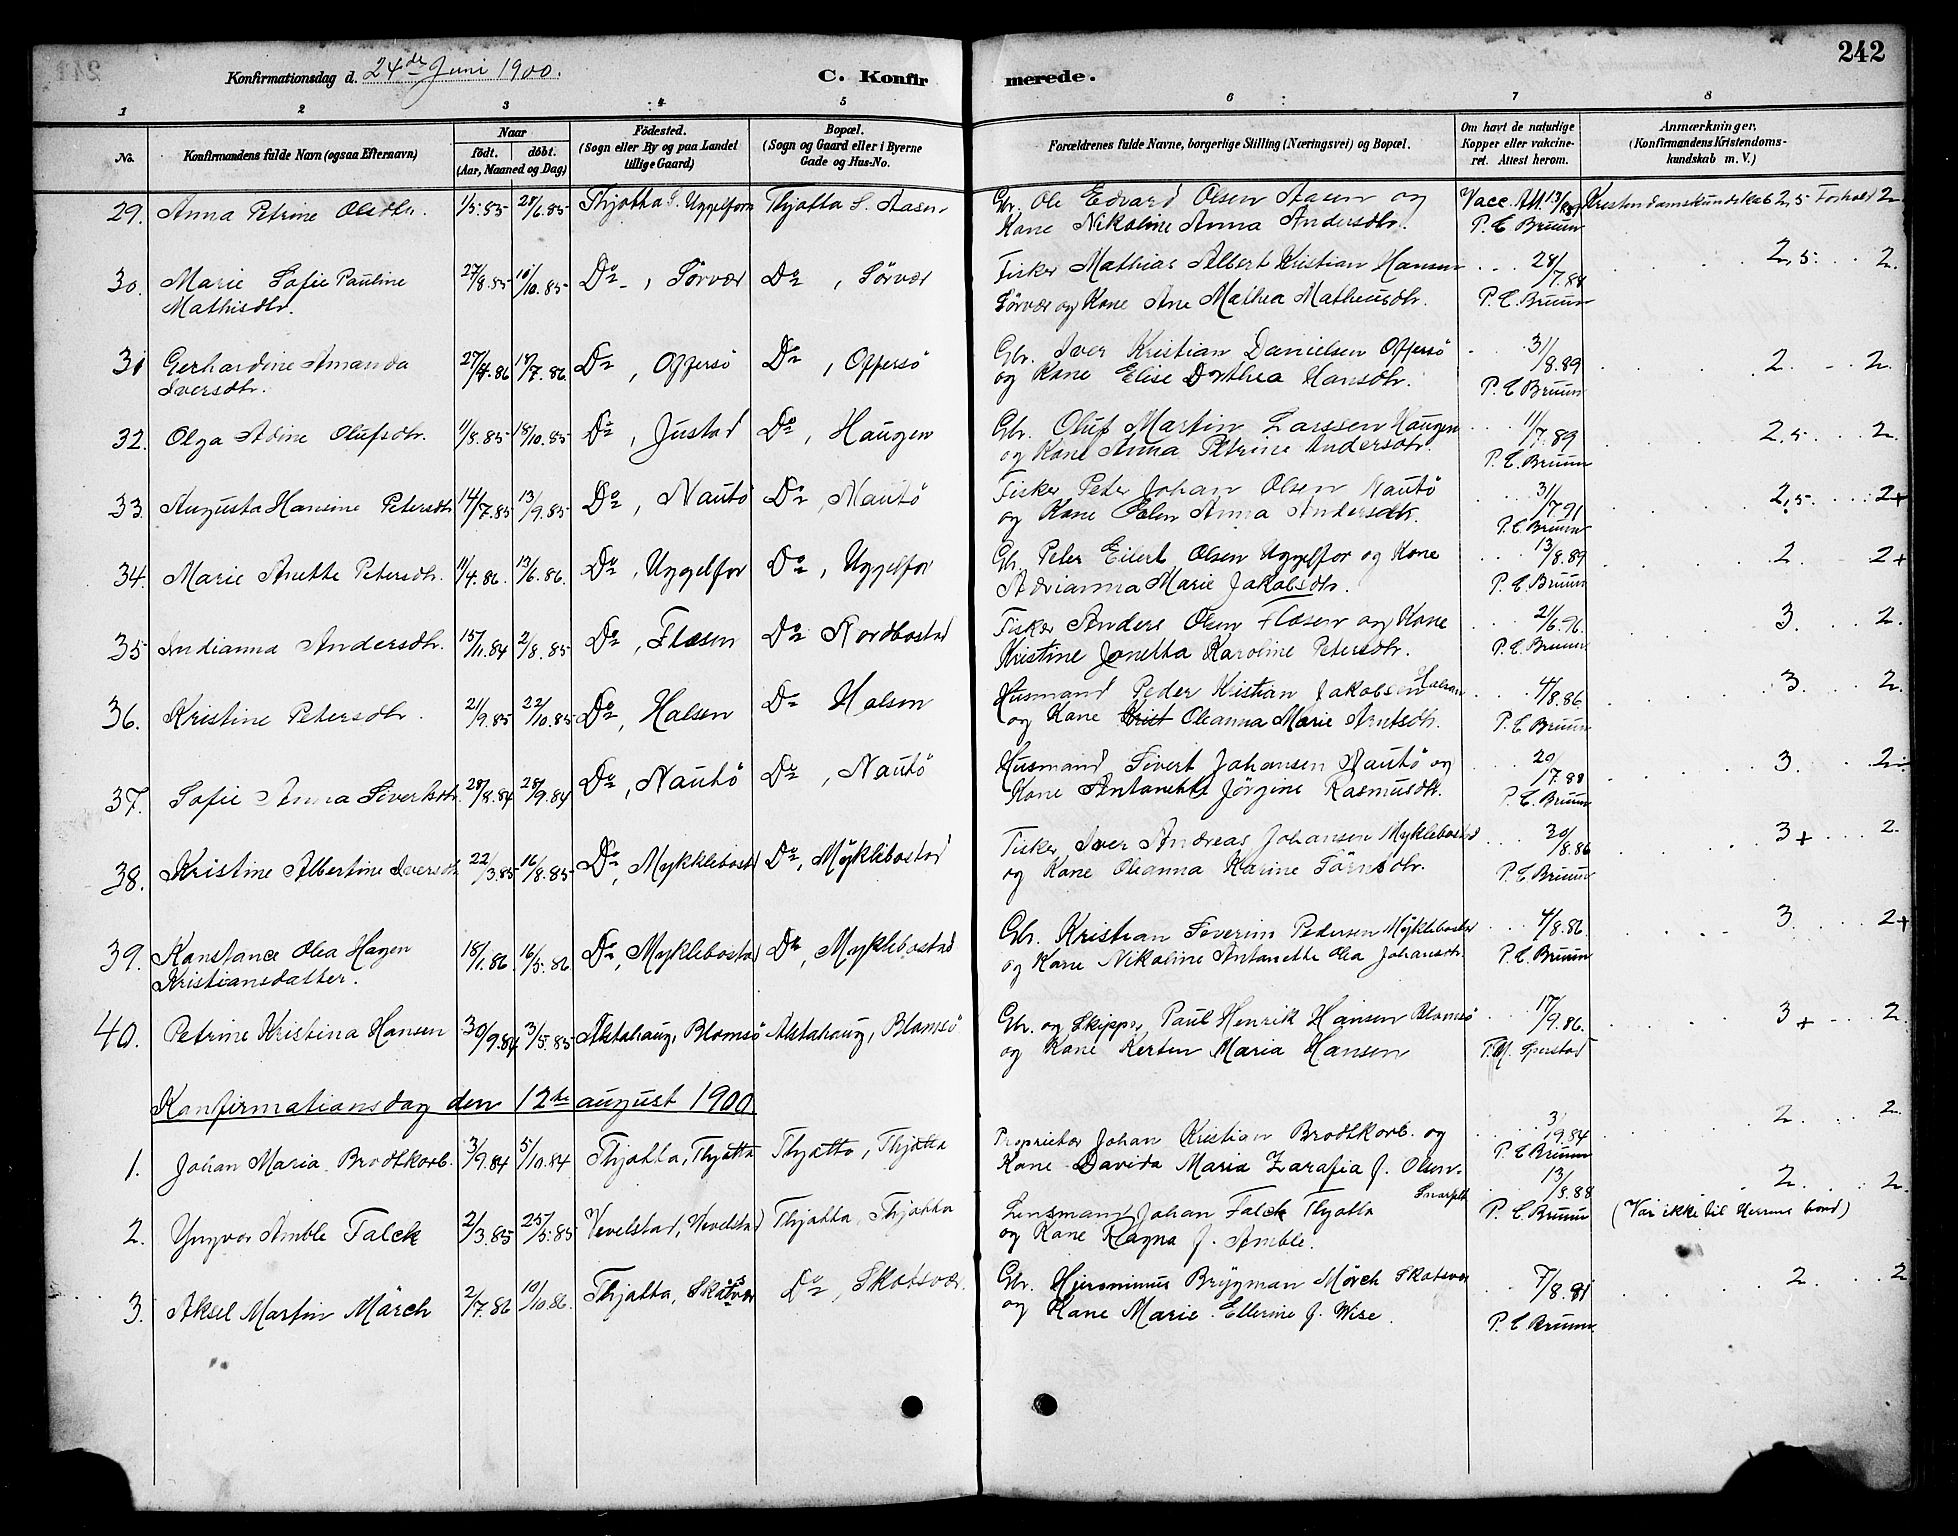 242
Konfirmationsdag d. 24de Juni 1900.
C. Konfirmerede.
1 2 3 4 5 6 7 8
No. Konfirmandens fulde Navn (ogsaa Efternavn) Naar født. døbt. (Aar, Maaned og Dag) Fødested. (Sogn eller By og paa Landet tillige Gaard) Bopæl. (Sogn og Gaard eller i Byerne Gade og Hus-No. Forældrenes fulde Navne, borgerlige Stilling (Næringsvei) og Bopæl. Om havt de naturlige Kopper eller vakcineret. Attest herom. Anmærkninger. (Konfirmandens Kristendomskundskab m. V.)
29. Anna Petrine Olsdtr. 1/5.85 28/6.85 Thjøtta S. Uggelforn Thjøtta S. Aasen Gbr. Ole Edvard Olsen Aasen og Vacc. Att. Kristendomskundskab 2,5 Forhold 2
Kone Nikoline Anna Andersdtr. P. C. Bruun
30. Marie Sofie Pauline 27/8.85 /10.85 Do, Sørvær Do, Sørvær Fisker Mathias Albert Kristian Hansen 28/7.88 2,5. 2.
Mathisdtr. Sørvær og Kone Ane Mathea Matheusdtr. P. C. Bruun
31 Gerhardine Amanda 27/4.86 18/7.86 Do, Offersø Do, Offersø Gbr. Iver Kristian Danielsen Offersø 31/8.89 2. 2.
Iversdtr. og Kone Elise Dorthea Hansdtr. P. C. Bruun
32. Olga Adine Olufsdtr. 11/8.85 18/10.85 Do, Justad Do, Haugen Gbr. Oluf Martin Larssen Haugen 11/7.89 2,5. 2.
og Kone Anna Petrine Andersdtr. P. C. Bruun
33. Augusta Hansine Petersdtr 14/7.85 13/9.85 Do, Nautø Do, Nautø Fisker Peter Johan Olsen Nautø 31/7.91 2,5. 2+
og Kone Elen Anna Andersdtr. P. C. Bruun
34. Marie Anette Petersdtr. 11/4.86. 13/6.86. Do, Uggelfor Do, Uggelfor Gbr. Peter Eilert Olsen Uggelfor og Kone 13/8.89 2. 2+
Adrianna Marie Jakobsdtr. P. C. Bruun
35 Indianna Andersdtr. 15/11.84 2/8.85 Do, Flæsen Do Nordbostad Fisker Anders Olsen Flæsen og Kone 21/6.96 3. 2.
Kristine Jonetta Karoline Petersdtr. P. C. Bruun
36. Kristine Petersdtr. 21/9.85 22/10.85 Do, Halsen Do Halsen Husmand Peder Kristian Jakobsen Halsen 4/8.86 3. 2.
og Kone Krist Oleanna Marie Arntsdtr. P. C. Bruun
37. Sofie Anna Sivertsdtr. 28/8.84 28/9.84 Do, Nautø Do, Nautø Husmand Sivert Johansen Nautø og 20/7.88 3. 2
Kone Antonette Jørgine Rasmusdtr. P. C. Bruun
38. Kristine Albertine Iversdtr 22/3.85 16/8.85 Do, Mykklebostad Do, Myklebostad Fisker Iver Andreas Johansen Myklebostad 30/8.86 3+ 2.
og Kone Oleanna Karine Tørnsdtr. P. C. Bruun
39. Konstance Olea Hagen 18/1.86 16/5.86 Do, Myklebostad Do, Myklebostad Gbr. Kristian Severin Pedersen Myklebostad 4/8.86. 3. 2+
Kristiansdatter. og Kone Nikoline Antonette Olea Johansdtr. P. C. Bruun
40. Petrine Kristina Hansen 30/9.84 3/5.85 Alstahaug, Blomsø Alstahaug, Blomsø Gbr. og Skipper Paul Henrik Hansen Blomsø 17/9.86. 3+ 2.
og Kone Kersten Maria Hansen Sperstad
Konfirmationsdag den 12te august 1900
1. Johan Maria Brodtkorb. 3/9.84 5/10.84 Thjøtta, Thjøtta Thjøtta, Thjøtta Proprietær Johan Kristian Brodtkorb. og 3/9.84 2. 2.
Kone Davida Maria Zarafia f. Olsen. P. C. Bruun
2. Yngvar Amble Falck 2/3.85 25/5.85 Vevelstad, Vevelstad Thjøtta, Thjøtta Lensmand Johan Falck Thjøtta 13/8.88 2. 2.
og Kone Ragna f. Amble. P. C. Bruun (Var ikke til Herrens bord)
3. Aksel Martin Mørch 2/7.86 10/10.86. Thjøtta, Skotsvær Do, Skotsvær. Gbr. Hjeronimus Brygman Mørch Skotsvær 7/8.91 2. 2
og Kone Marie Ellerine f. Wise. P. C. Bruun